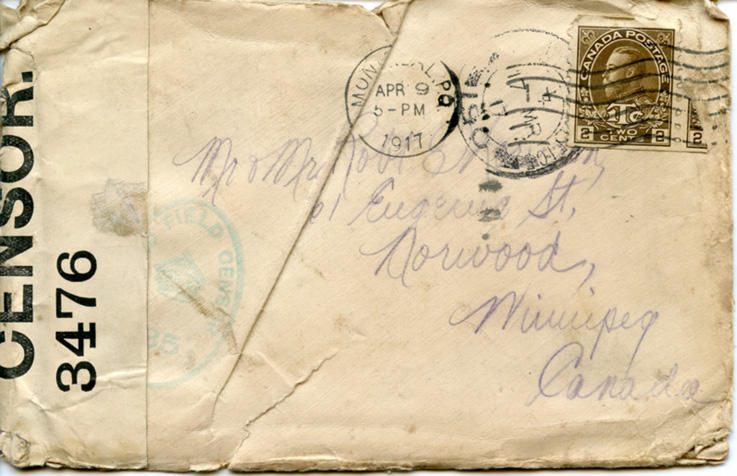 CENSOR.
3476
FIELD CENSOR
MONTREAL, P.Q
APR 9
5-PM
1917
CANADA POSTAGE
1Tc
2 TWO CENTS 2
2
Mr & Mrs Robt
Eugenie St,
Norwood,
Winnipeg
Canada